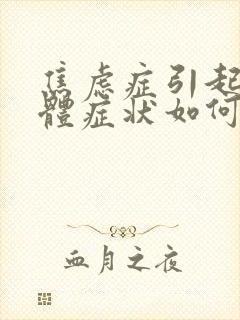 焦虑症引起
體症状如何
血月之夜